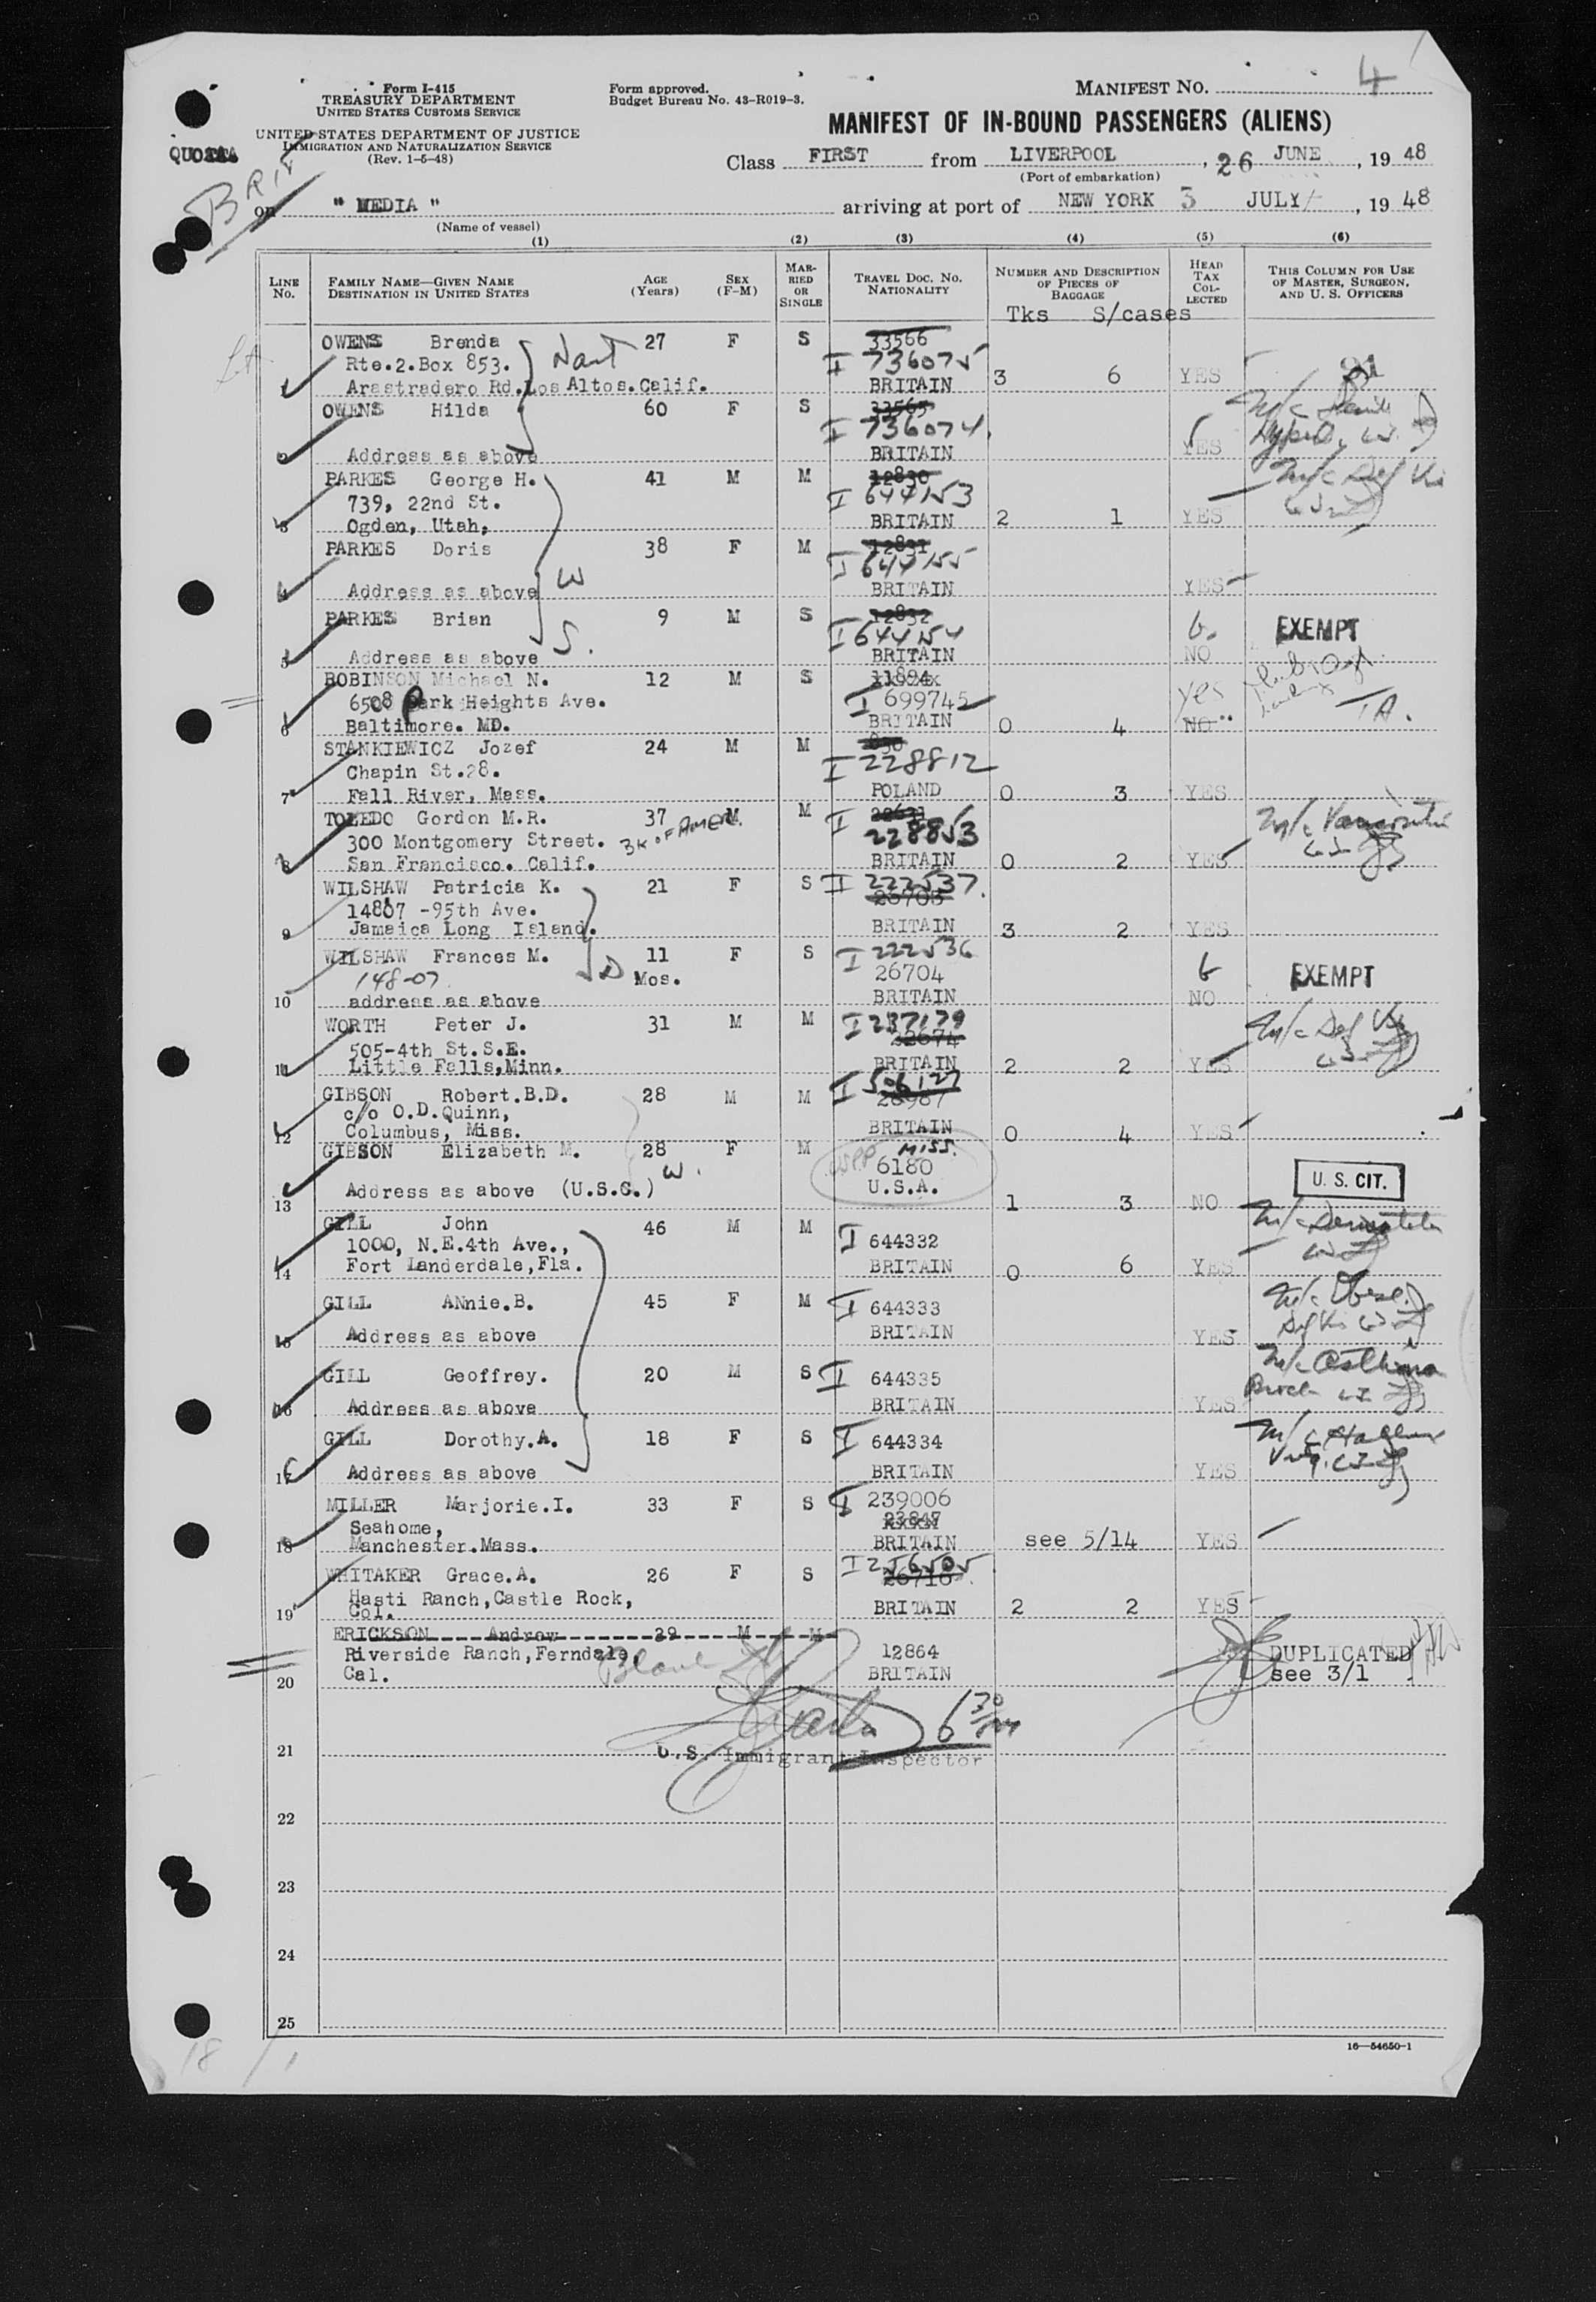 4
Form I-415
TREASURY DEPARTMENT
UNITED STATES CUSTOMS SERVICE
UNITED STATES DEPARTMENT OF JUSTICE
IMMIGRATION AND NATURALIZATION SERVICE
(Rev. 1-5-48)
Form approved.
Budget Bureau No. 43-R019-3.
MANIFEST NO.
MANIFEST OF IN-BOUND PASSENGERS (ALIENS)
QUOTA
BRIT
Class FIRST from LIVERPOOL, 26 JUNE, 1948
(Port of embarkation)
on " MEDIA " arriving at port of NEW YORK 3 JULY, 1948
(Name of vessel)
(1) (2) (3) (4) (5) (6)
LINE No.
FAMILY NAME—GIVEN NAME
DESTINATION IN UNITED STATES
AGE (Years)
SEX (F-M)
MARRIED OR SINGLE
TRAVEL DOC. NO. NATIONALITY
NUMBER AND DESCRIPTION OF PIECES OF BAGGAGE
Tks S/cases
HEAD TAX COLLECTED
THIS COLUMN FOR USE OF MASTER, SURGEON, AND U. S. OFFICERS
OWENS Brenda 27 F S 33566
Rte.2.Box 853. I 736075
1 Arastradero Rd.Los Altos.Calif. BRITAIN 3 6 YES
OWENS Hilda 60 F S 33565
I 736074
2 Address as above BRITAIN YES
PARKES George H. 41 M M 12830 M/c Def Vis
739, 22nd St. I 644153
3 Ogden, Utah, BRITAIN 2 1 YES
PARKES Doris 38 F M 12831
I 644155
4 Address as above W BRITAIN YES
PARKES Brian 9 M S 12832
I 644154 EXEMPT
5 Address as above S. BRITAIN NO
ROBINSON Michael N. 12 M S 11894
6508 Park Heights Ave. I 699745 yes
6 Baltimore. MD. BRITAIN 0 4 NO
STANKIEWICZ Jozef 24 M M 830
Chapin St.28. I 228812
7 Fall River, Mass. POLAND 0 3 YES
TOLEDO Gordon M.R. 37 M M I 22631
300 Montgomery Street. BK OF AMER. 228853
8 San Francisco. Calif. BRITAIN 0 2 YES
WILSHAW Patricia K. 21 F S I 222537
14807 -95th Ave. 26705
9 Jamaica Long Island. BRITAIN 3 2 YES
WILSHAW Frances M. 11 Mos. F S I 222536
148-07 D 26704 EXEMPT
10 address as above BRITAIN NO
WORTH Peter J. 31 M M I 237179 M/c Def Vis
505-4th St.S.E. 32674
11 Little Falls,Minn. BRITAIN 2 2 YES
GIBSON Robert.B.D. 28 M M I 506127
c/o O.D.Quinn, 28987
12 Columbus, Miss. BRITAIN 0 4 YES
GIBSON Elizabeth M. 28 F M MISS.
W. 6180 U. S. CIT.
13 Address as above (U.S.C.) U.S.A. 1 3 NO
GILL John 46 M M
1000, N.E.4th Ave., I 644332
14 Fort Landerdale,Fla. BRITAIN 0 6 YES
GILL ANnie.B. 45 F M I 644333 M/c Obese
15 Address as above BRITAIN YES
GILL Geoffrey. 20 M S I 644335 M/c Asthma
16 Address as above BRITAIN YES
GILL Dorothy.A. 18 F S I 644334
17 Address as above BRITAIN YES
MILLER Marjorie.I. 33 F S I 239006
Seahome, 23847
18 Manchester.Mass. BRITAIN see 5/14 YES
WHITAKER Grace.A. 26 F S I 256505
Hasti Ranch,Castle Rock, 26716
19 Col. BRITAIN 2 2 YES
ERICKSON Andrew 39 M M
Riverside Ranch,Ferndale, 12864 DUPLICATED
20 Cal. BRITAIN see 3/1
6 30
21 U.S. Immigrant Inspector
22
23
24
25
16—54650-1
18 / 1